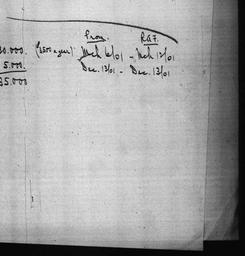 From. R.G.F.
30.000. (2500 a year). Mch 16/01 - Mch 12/01
5.000. Dec. 13/01 - Dec. 13/01
35.000